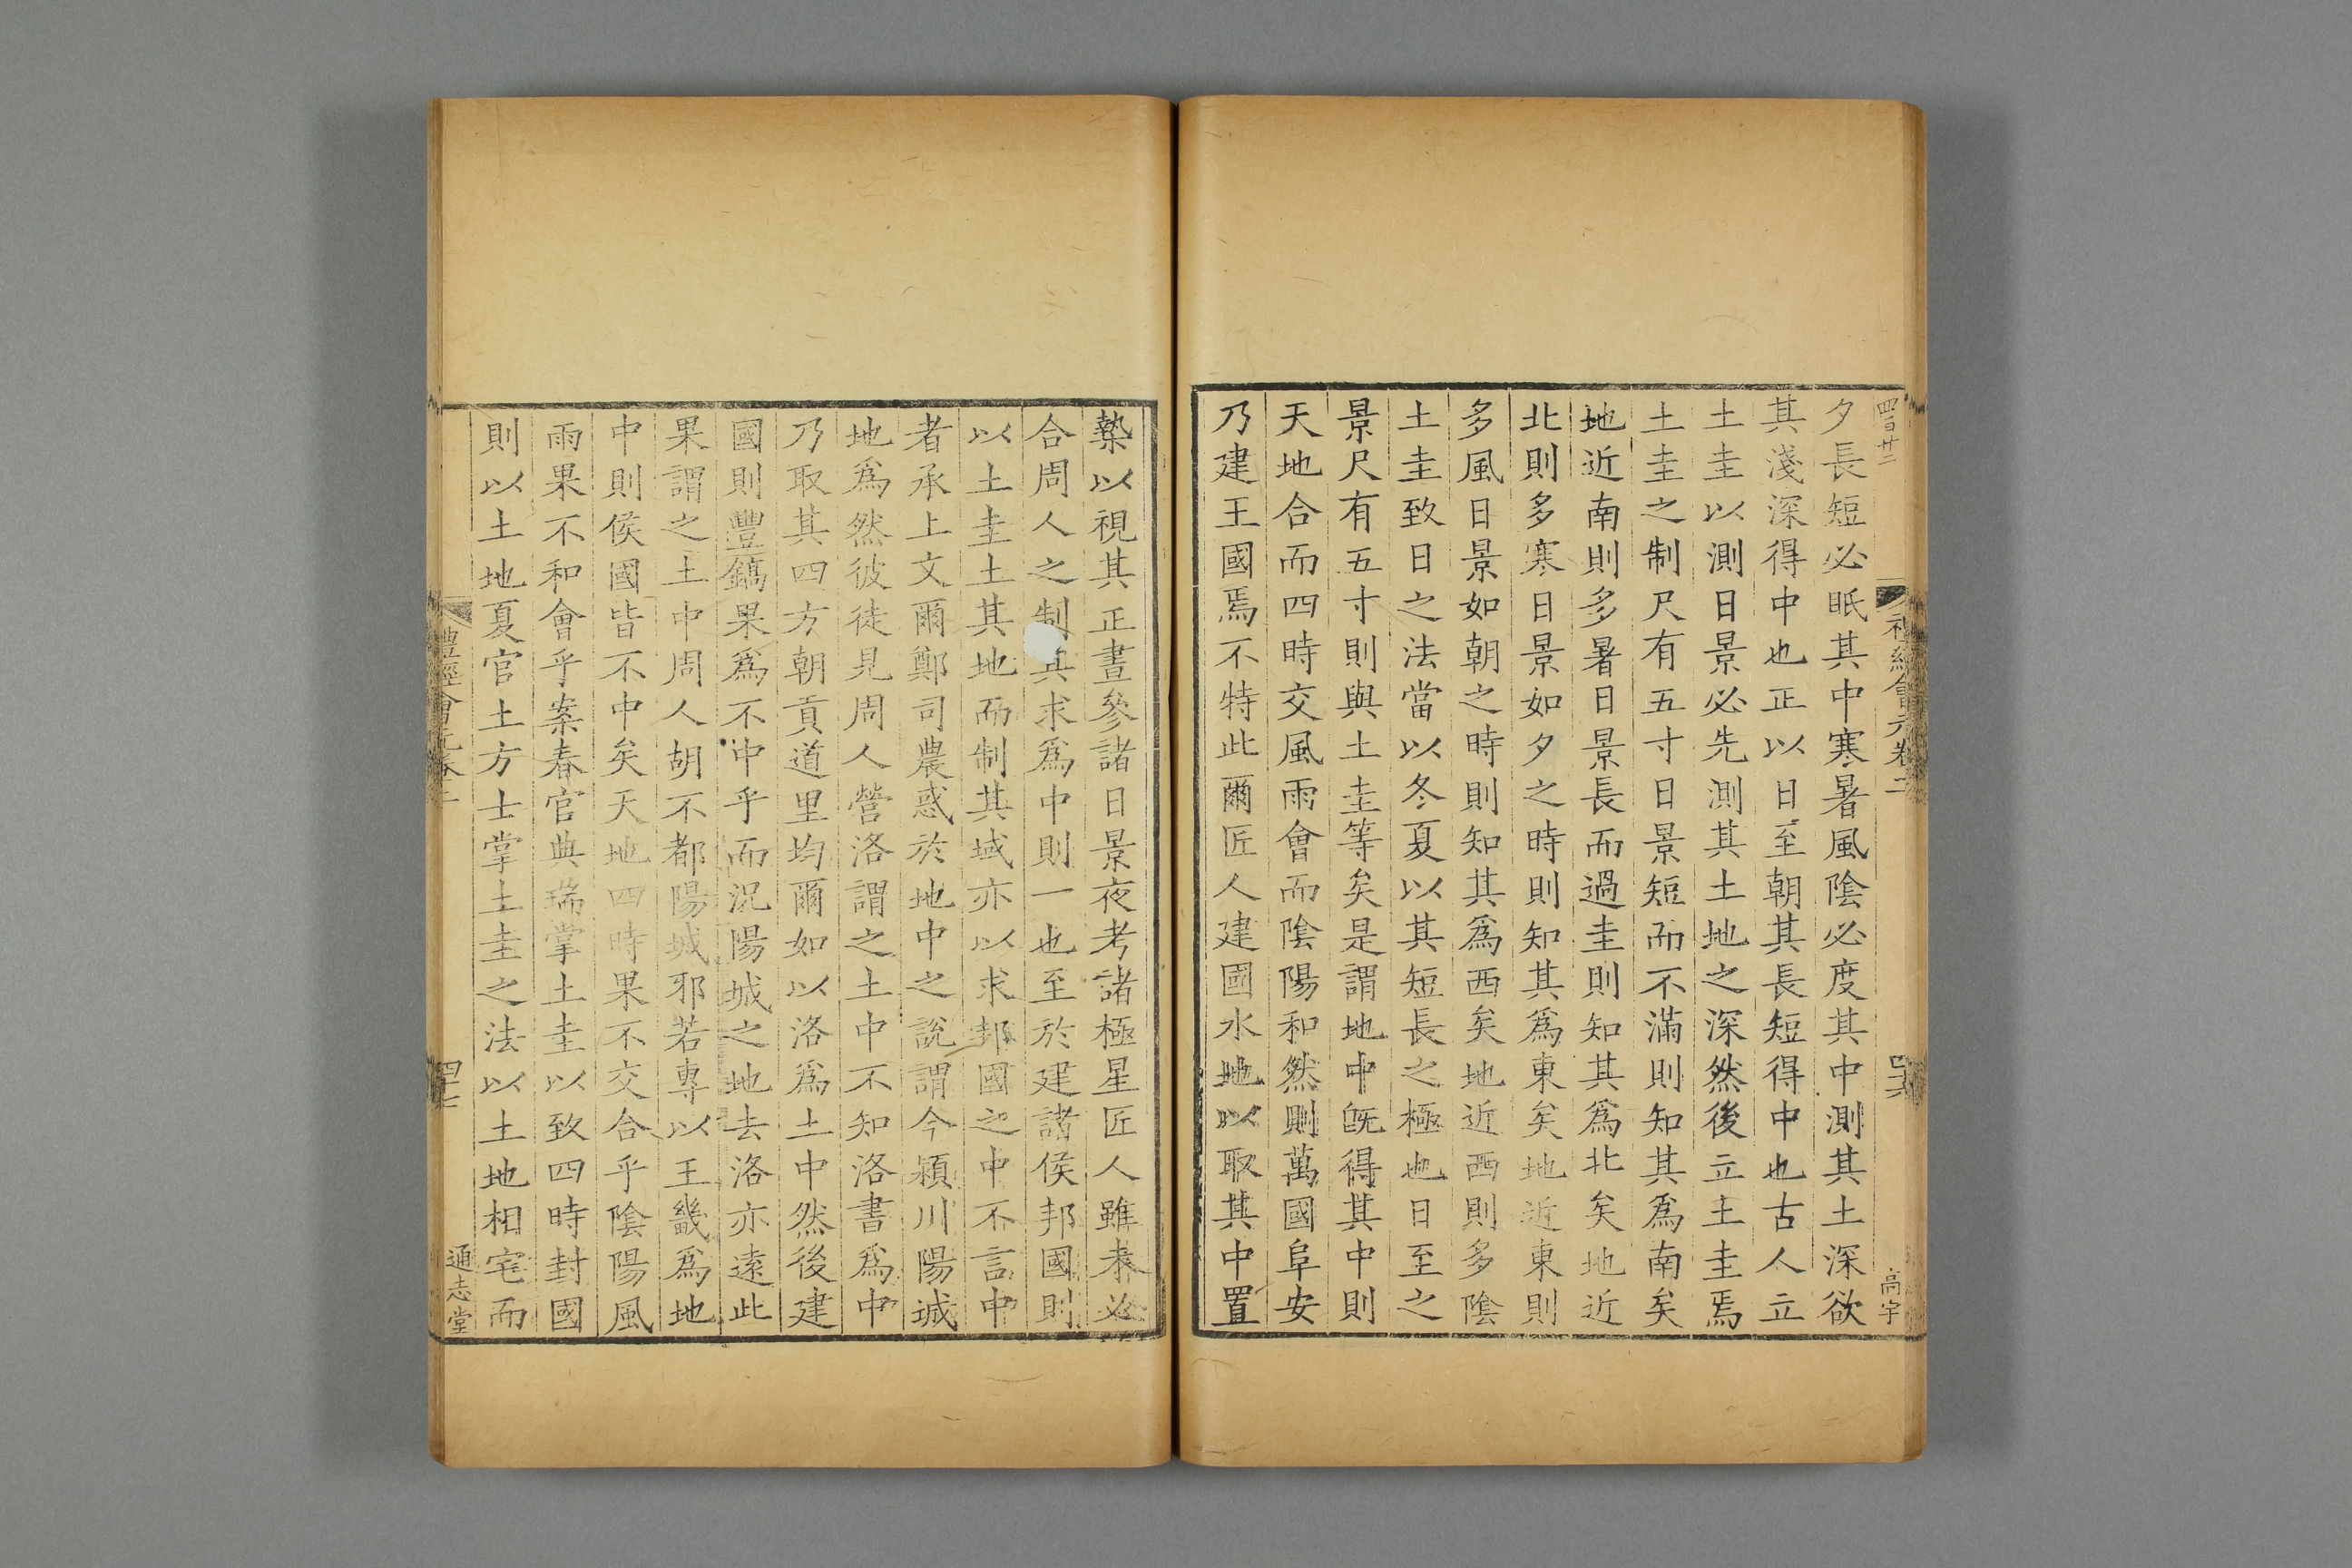 四百廿二
夕長短必眡其中寒暑風陰必度其中測其土深欲
其淺深得中也正以日至朝其長短得中也古人立
土圭以測日景必先測其土地之深然後立土圭焉
土圭之制尺有五寸日景短而不滿則知其爲南矣
地近南則多暑日景長而過圭則知其爲北矣地近
北則多寒日景如夕之時則知其爲東矣地近東則
多風日景如朝之時則知其爲西矣地近西則多陰
土圭致日之法當以冬夏以其短長之極也日至之
景尺有五寸則與土圭等矣是謂地中旣得其中則
天地合而四時交風雨會而陰陽和然則萬國阜安
乃建王國焉不特此爾匠人建國水地以取其中置
槷以視其正晝參諸日景夜考諸極星匠人雖未必
合周人之制其求爲中則一也至於建諸侯邦國則
以土圭土其地而制其域亦以求邦國之中不言中
者承上文爾鄭司農惑於地中之說謂今潁川陽城
地爲然彼徒見周人營洛謂之土中不知洛書爲中
乃取其四方朝貢道里均爾如以洛爲土中然後建
國則豐鎬果爲不中乎而況陽城之地去洛亦遠此
果謂之土中周人胡不都陽城耶若專以王畿爲地
中則侯國皆不中矣天地四時果不交合乎陰陽風
雨果不和會乎案春官典瑞掌土圭以致四時封國
則以土地夏官土方士掌土圭之法以土地相宅而
通志堂
禮經會元卷二
四十六
高宇